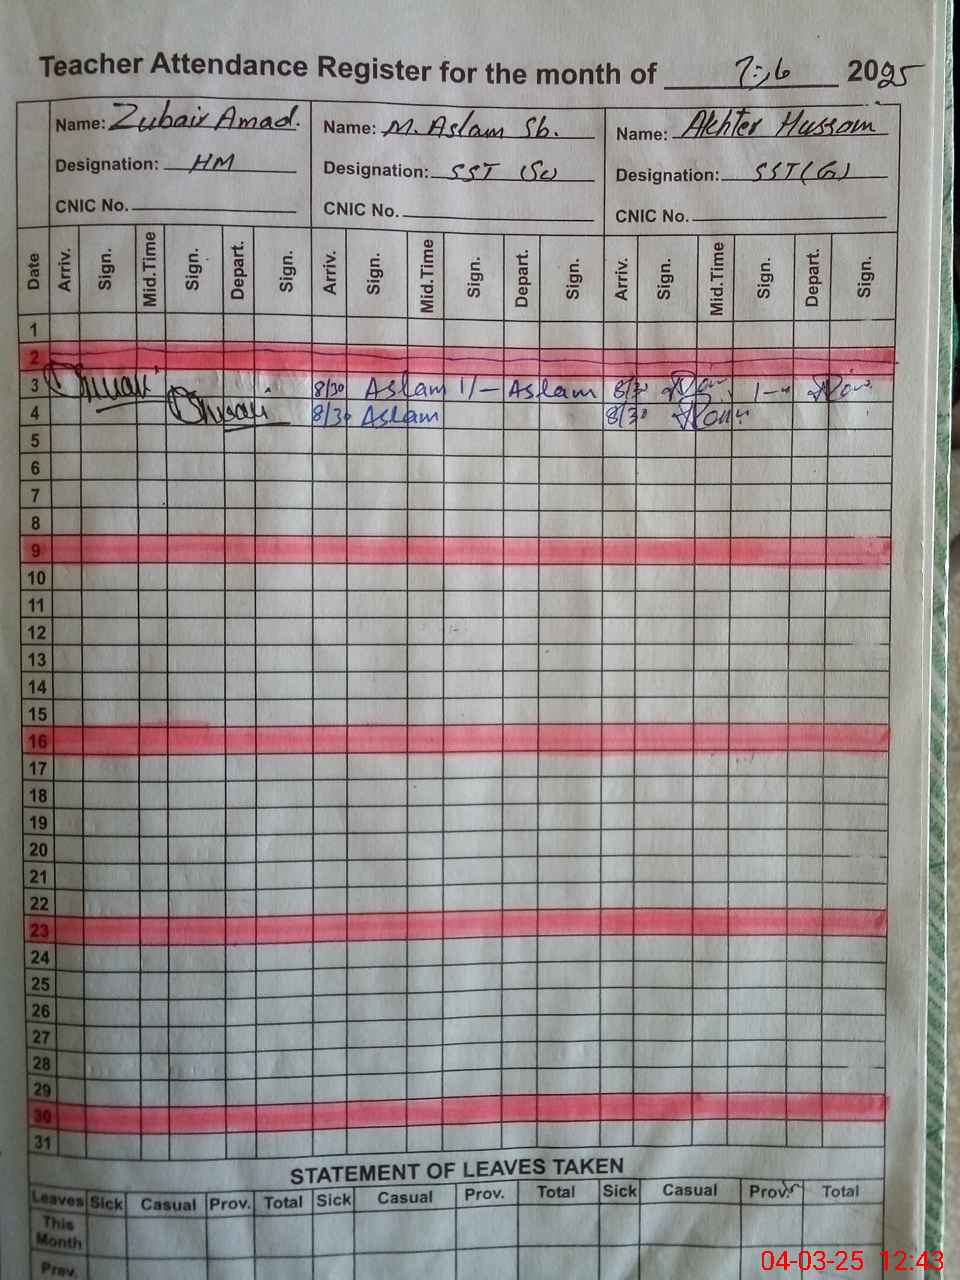 Teacher Attendance Register for the month of 2025
Name: Zubair Amad. Name: M. Aslam Sb. Name: Akhter Hussain
Designation: HM Designation: SST (Sc) Designation: SST (G)
CNIC No. CNIC No. CNIC No.
Date Arriv. Sign. Mid.Time Sign. Depart. Sign. Arriv. Sign. Mid.Time Sign. Depart. Sign. Arriv. Sign. Mid.Time Sign. Depart. Sign.
1
2
3 8/30 Aslam 1/- Aslam 8/30
4 8/30 Aslam 8/30
5
6
7
8
9
10
11
12
13
14
15
16
17
18
19
20
21
22
23
24
25
26
27
28
29
30
31
STATEMENT OF LEAVES TAKEN
Leaves Sick Casual Prov. Total Sick Casual Prov. Total Sick Casual Prov. Total
This
Month
Prev.
04-03-25 12:43